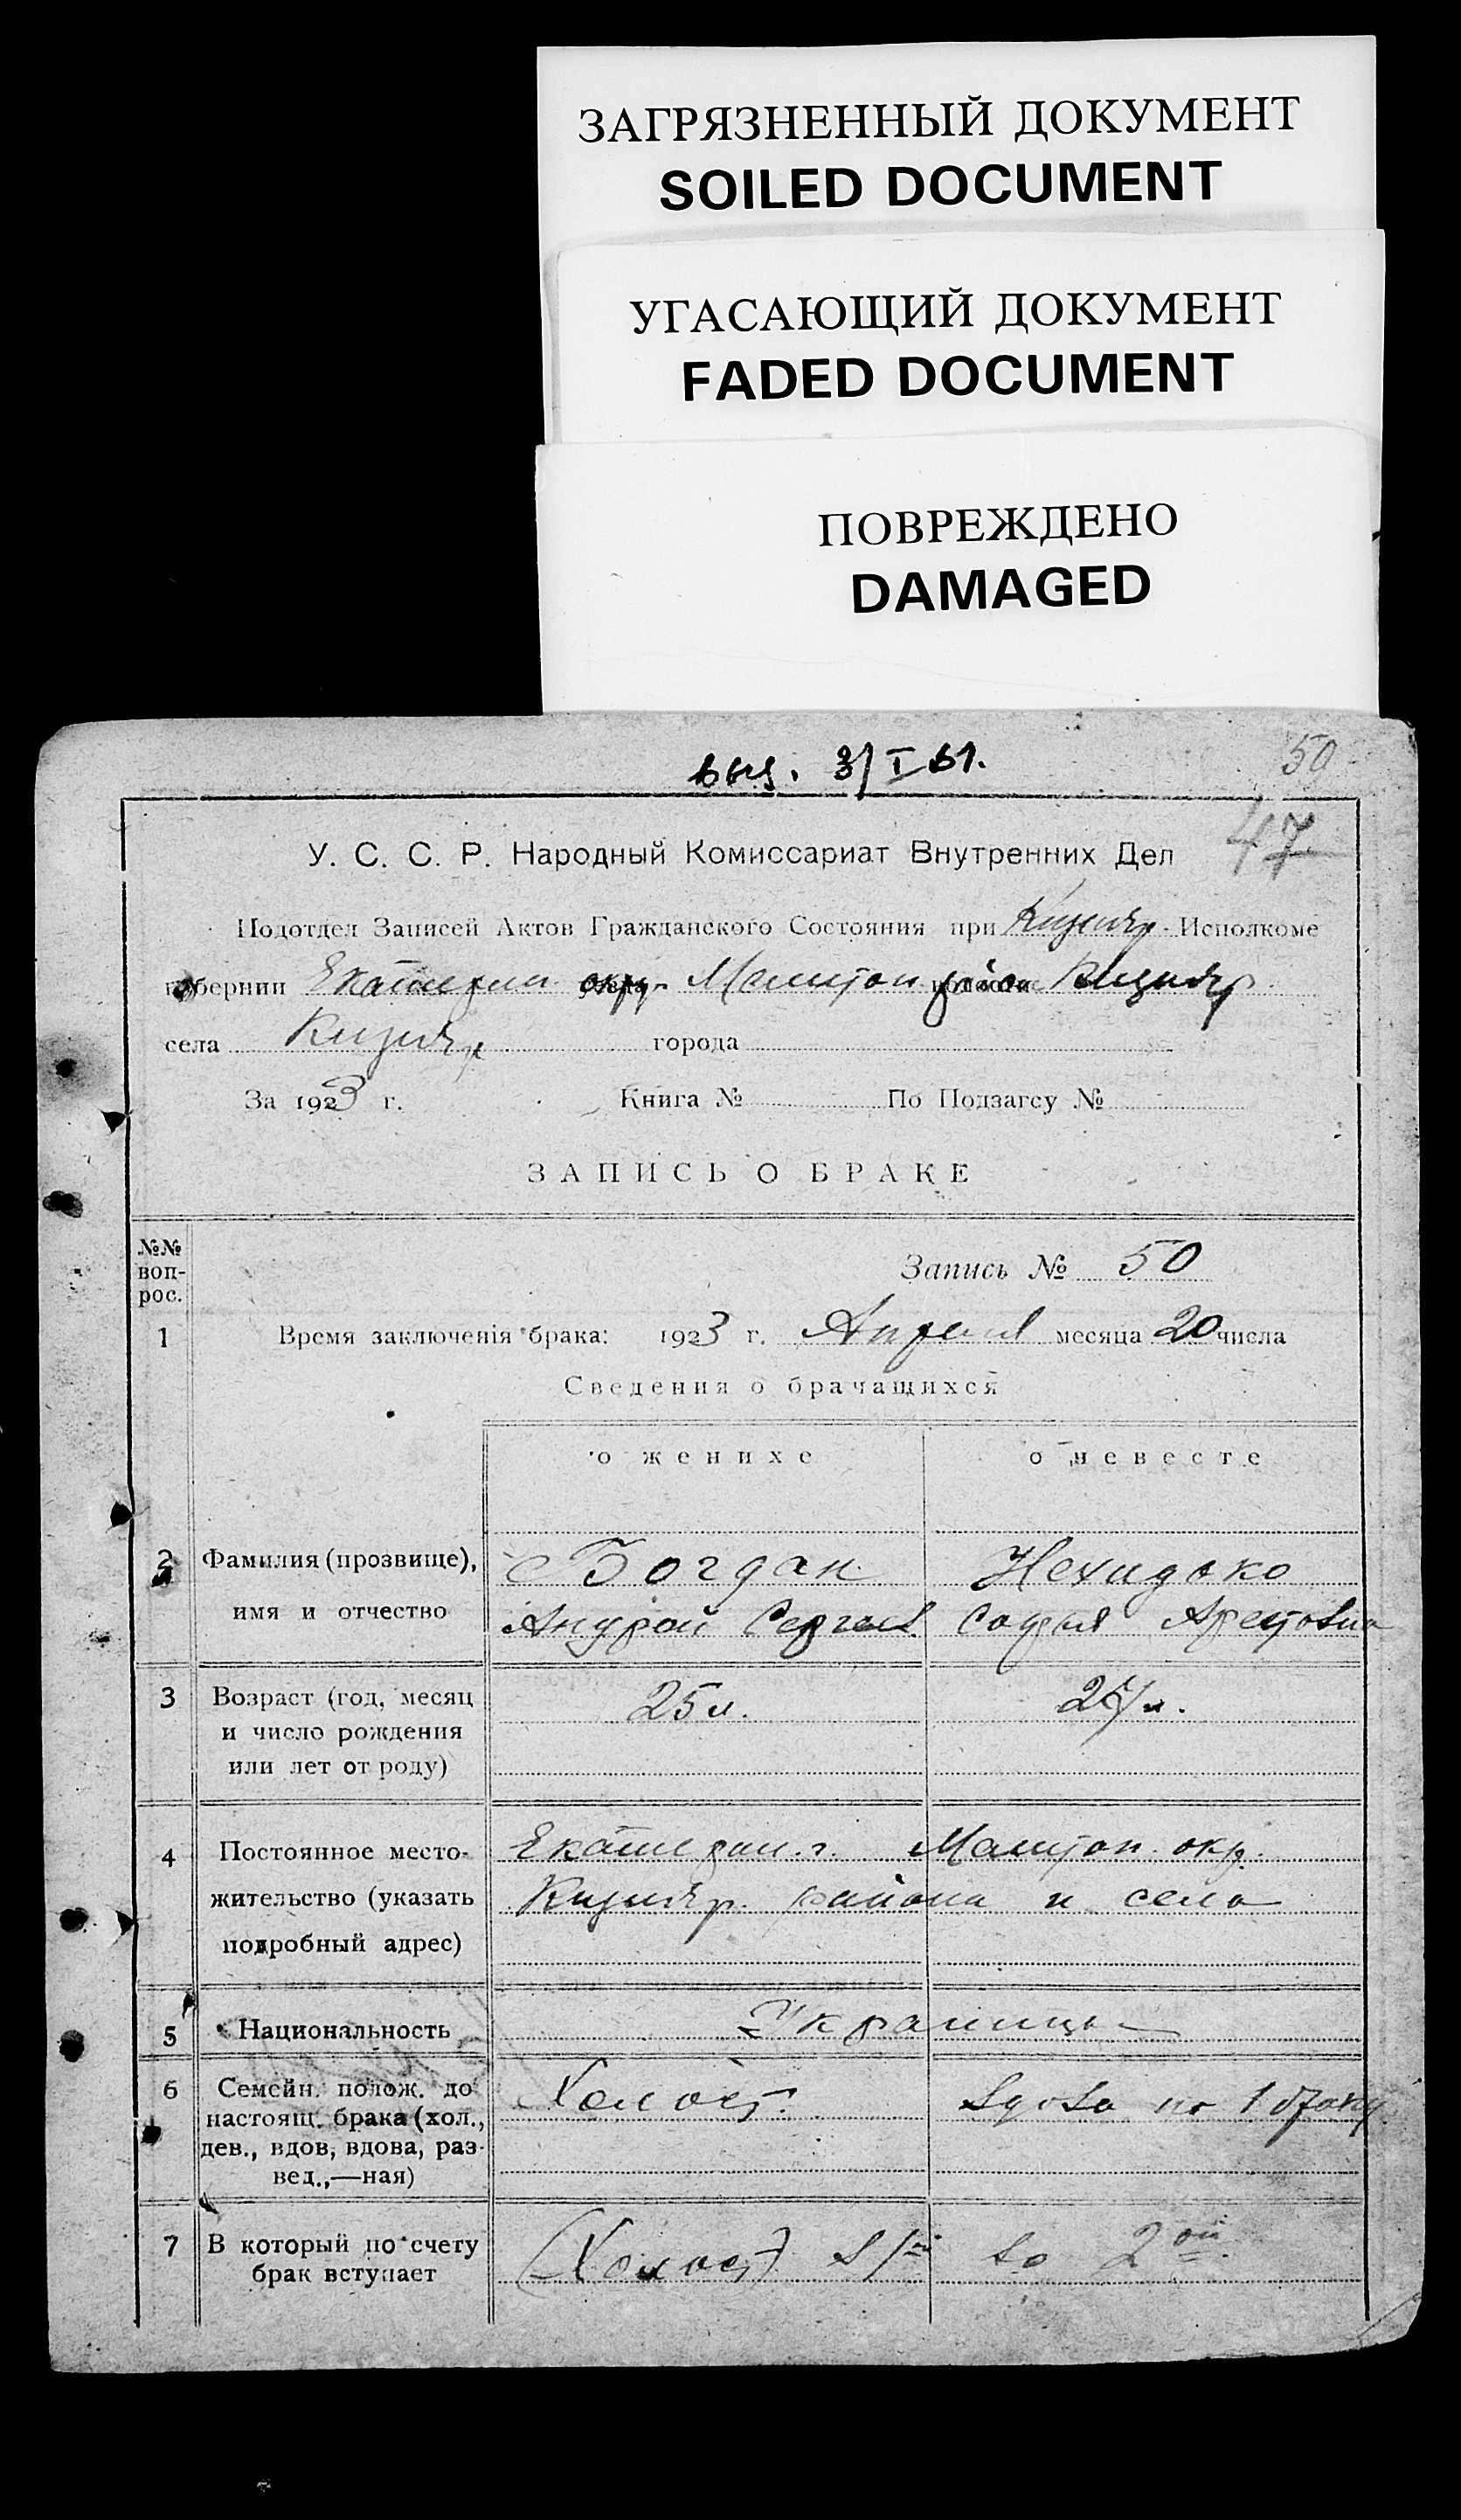 ЗАГРЯЗНЕННЫЙ ДОКУМЕНТ
SOILED DOCUMENT
УГАСАЮЩИЙ ДОКУМЕНТ
FADED DOCUMENT
ПОВРЕЖДЕНО
DAMAGED
выд. 3/I 61.
50
47
У. С. С. Р. Народный Комиссариат Внутренних Дел
Подотдел Записей Актов Гражданского Состояния при Кизияр. Исполкоме
губернии Екатерин окр. Мелитоп район Кизияр
села Кизияр города
За 1923 г. Книга № По Подзагсу №
ЗАПИСЬ О БРАКЕ
№№ вопрос.
Запись № 50
1 Время заключенія брака: 1923 г. Апреля месяца 20 числа
Сведения о брачащихся
о женихе о невесте
2 Фамилия (прозвище), Богдан
имя и отчество Андрей Сергеев Софья
3 Возраст (год, месяц 25 л.
и число рождения
или лет от роду)
4 Постоянное место- Екатерин. г. Мелитоп. окр.
жительство (указать Кизияр. района и села
подробный адрес)
5 Национальность Украинцы
6 Семейн. полож. до Холост. вдова по 1 браку
настоящ. брака (хол.,
дев., вдов, вдова, раз-
вед.,—ная)
7 В который по счету (Холост) в 1й во 2ой
брак вступает